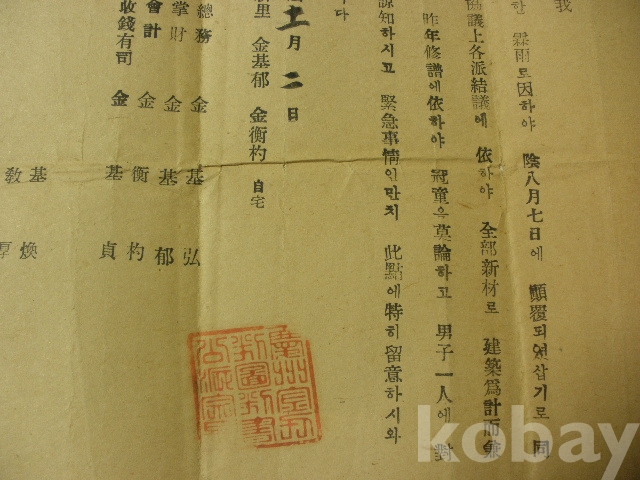 我
한 霖雨로因하야 陰八月七日에 顚覆되엿삽기로 同
協議上各派結議에 依하야 全部新材로 建築爲計而兼
昨年修譜에依하야 冠童은莫論하고 男子一人에 對
諒知하시고 緊急事情인만치 此點에特히留意하시와
니다
十一月二日
里 金基郁 金衡杓 自宅
總務 金基弘
掌財 金基郁
會計 金衡杓
收錢有司 金基貞
基煥
敎厚
kobay